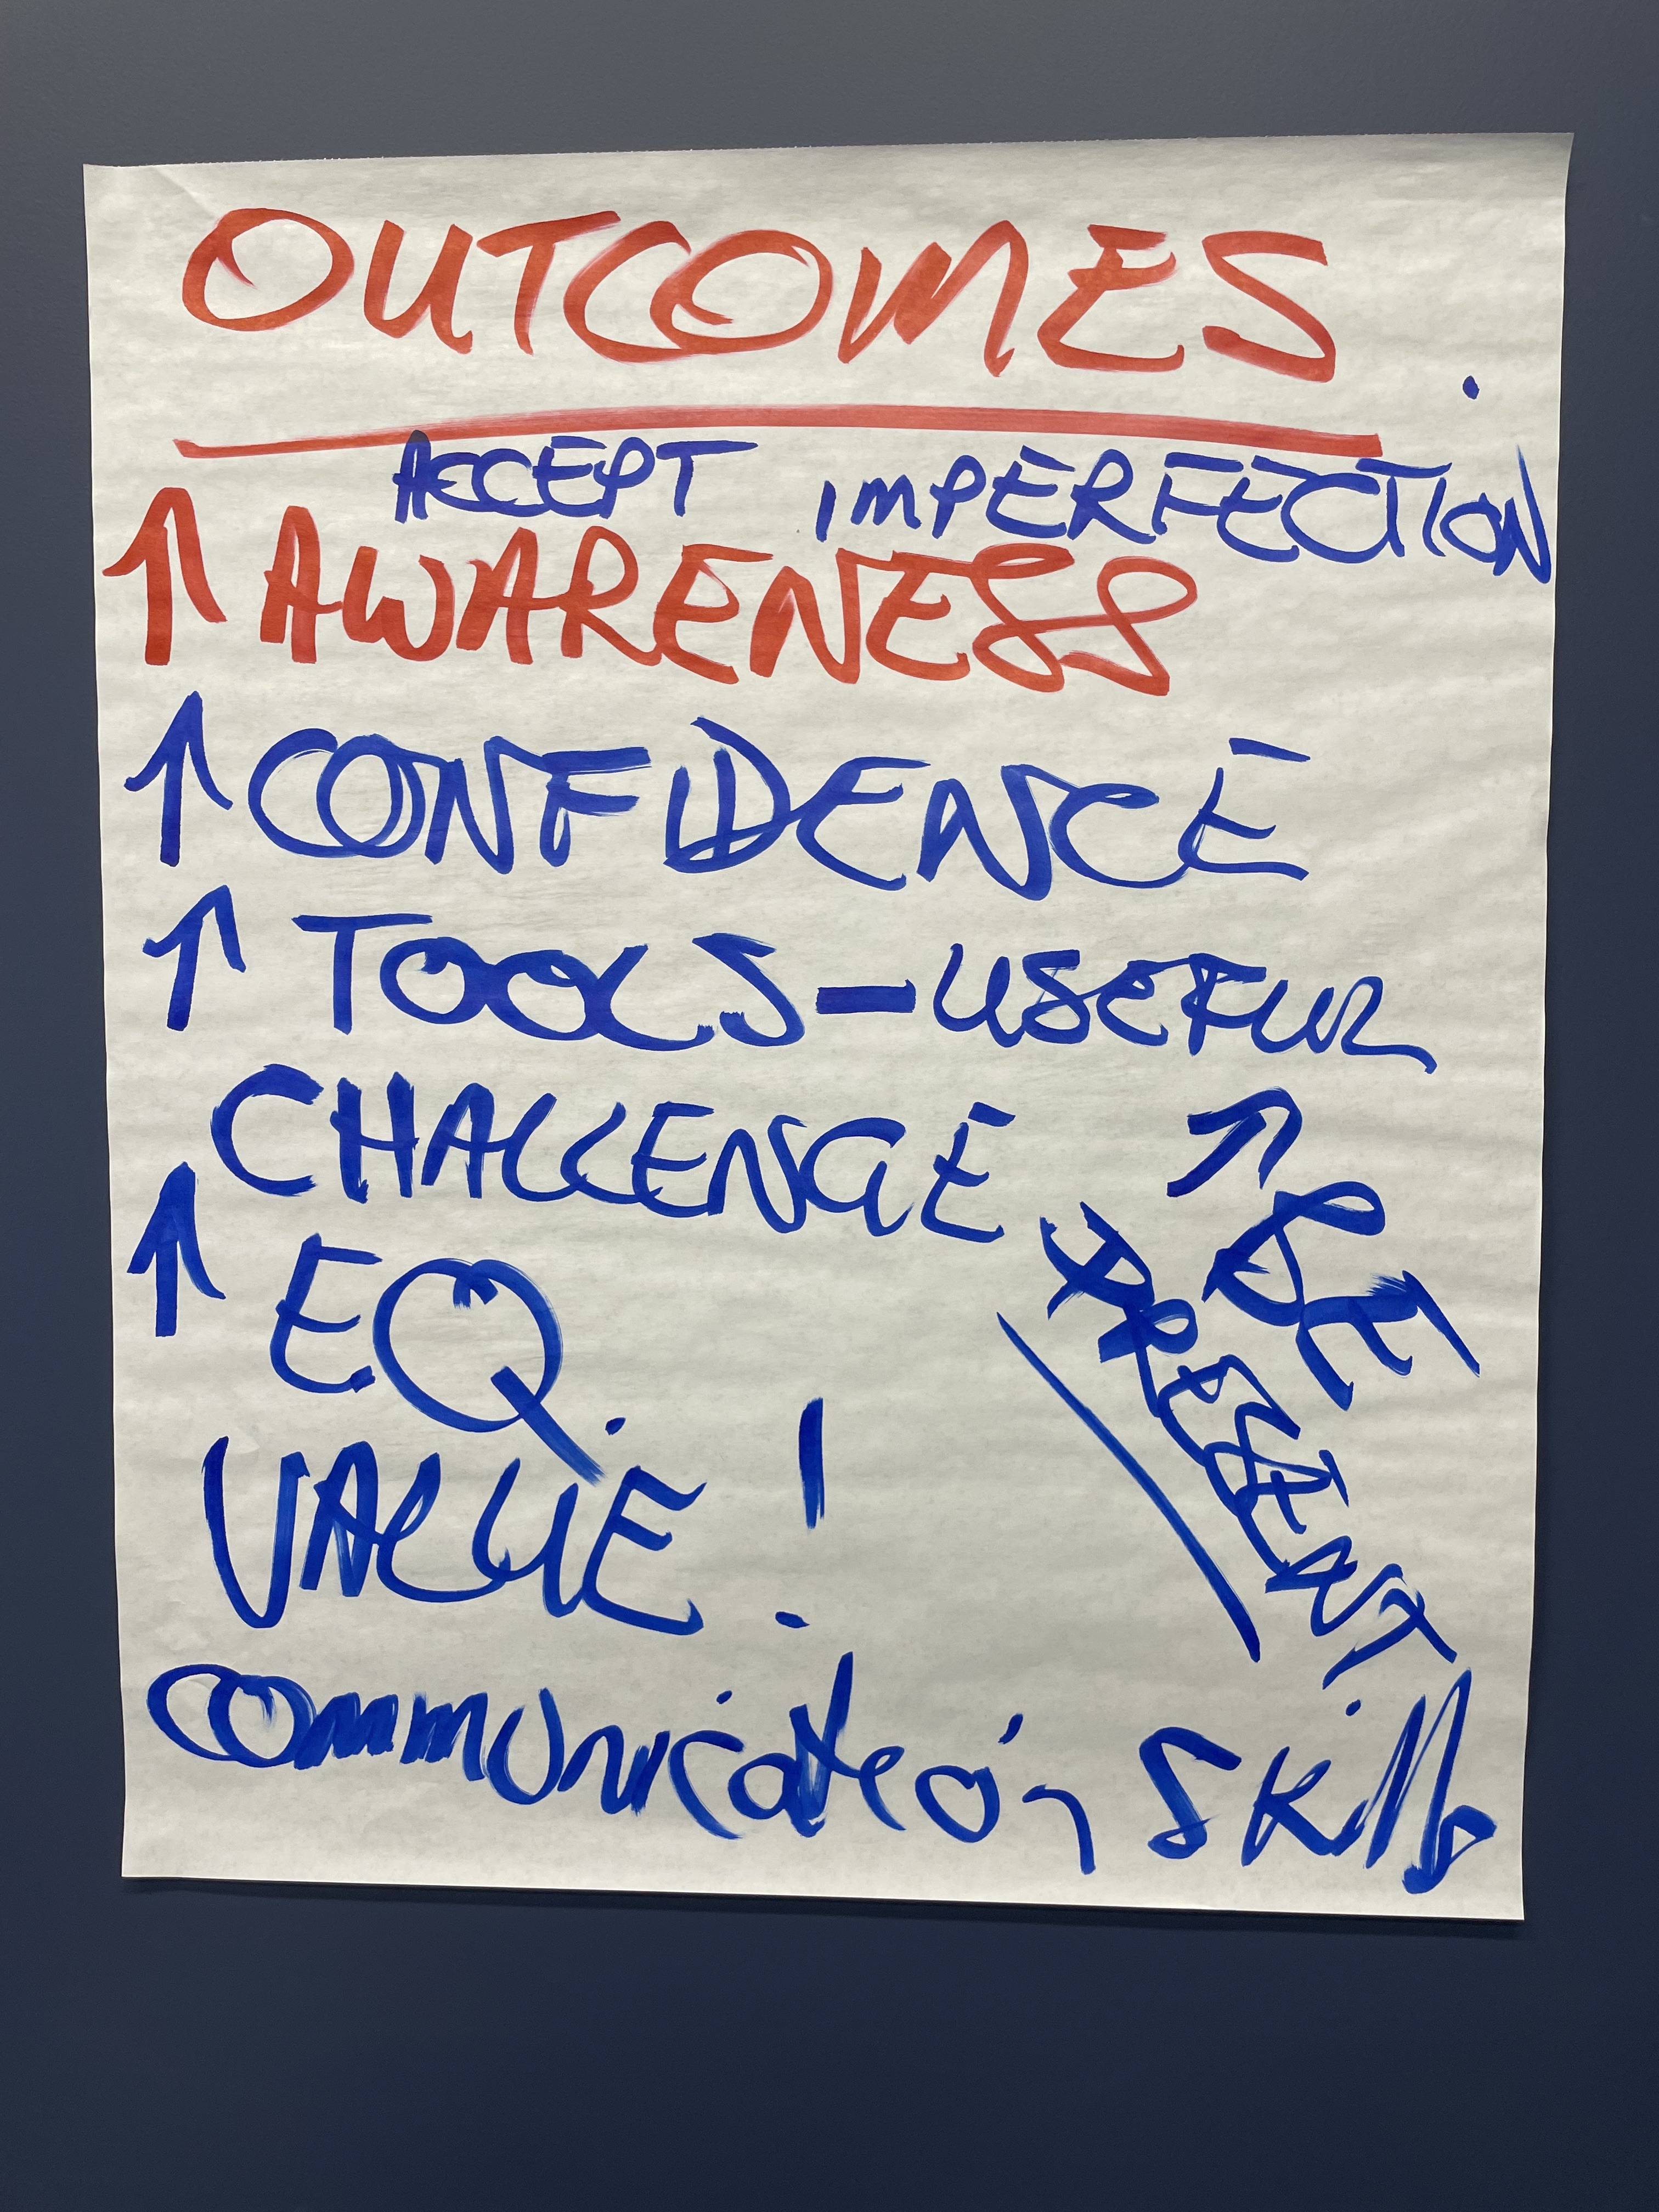 OUTCOMES
ACCEPT IMPERFECTION
↑ AWARENESS
↑ CONFIDENCE
↑ TOOLS - USEFUL
CHALLENGE
↑ BE
PRESENT.
↑ EQ.
VALUE!
communication skills